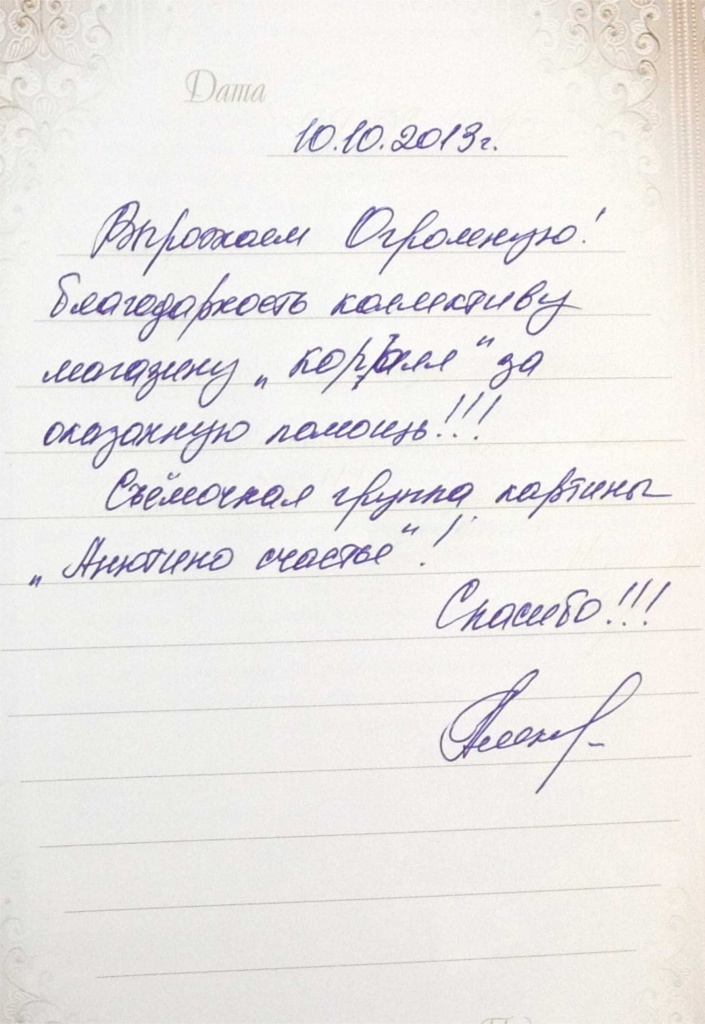 Дата
10.10.2013г.
Выражаем Огромную!
благодарность коллективу
магазину „Коралл“ за
оказанную помощь!!!
Съёмочная группа картины
„Анютино счастье“!
Спасибо!!!